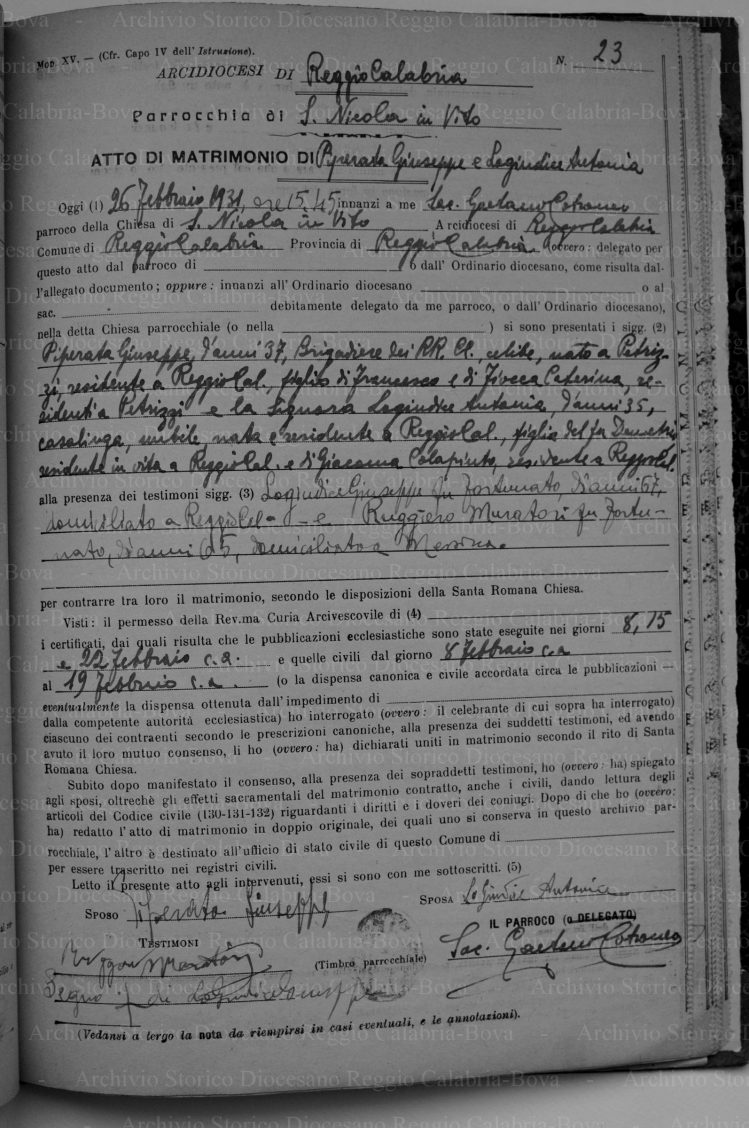 Mod. XV. — (Cfr. Capo IV dell' Istruzione).
N. 23
ARCIDIOCESI DI Reggio Calabria
Parrocchia di S. Nicola in Vito
ATTO DI MATRIMONIO DI Piperata Giuseppe e Logiudice Antonia
Oggi (1) 26 Febbraio 1931, ore 15.45 innanzi a me Sac. Gaetano Cotroneo
parroco della Chiesa di S. Nicola in Vito Arcidiocesi di Reggio Calabria
Comune di Reggio Calabria Provincia di Reggio Calabria ovvero: delegato per
questo atto dal parroco di o dall' Ordinario diocesano, come risulta dal-
l'allegato documento; oppure: innanzi all' Ordinario diocesano o al
sac. debitamente delegato da me parroco, o dall' Ordinario diocesano),
nella detta Chiesa parrocchiale (o nella ) si sono presentati i sigg. (2)
Piperata Giuseppe, d'anni 37, Brigadiere dei RR. CC., celibe, nato a Petriz-
zi, residente a Reggio Cal., figlio di Francesco e di Caterina, re-
sidenti a Petrizzi e la Signora Logiudice Antonia, d'anni 35,
casalinga, nubile, nata e residente a Reggio Cal., figlia del fu Demetrio
residente in vita a Reggio Cal. e di Giacoma Colapinto, residente a Reggio Cal.
alla presenza dei testimoni sigg. (3) Logiudice Giuseppe fu Fortunato, d'anni 67,
domiciliato a Reggio Cal. e Ruggiero Muratori fu Fortu-
nato, d'anni 65, domiciliato a Messina.
per contrarre tra loro il matrimonio, secondo le disposizioni della Santa Romana Chiesa.
Visti: il permesso della Rev.ma Curia Arcivescovile di (4)
i certificati, dai quali risulta che le pubblicazioni ecclesiastiche sono state eseguite nei giorni 8, 15
e 22 Febbraio c.a. e quelle civili dal giorno 8 Febbraio c.a
al 19 Febbraio c.a. (o la dispensa canonica e civile accordata circa le pubblicazioni
eventualmente la dispensa ottenuta dall'impedimento di
dalla competente autorità ecclesiastica) ho interrogato (ovvero: il celebrante di cui sopra ha interrogato)
ciascuno dei contraenti secondo le prescrizioni canoniche, alla presenza dei suddetti testimoni, ed avendo
avuto il loro mutuo consenso, li ho (ovvero: ha) dichiarati uniti in matrimonio secondo il rito di Santa
Romana Chiesa.
Subito dopo manifestato il consenso, alla presenza dei sopraddetti testimoni, ho (ovvero: ha) spiegato
agli sposi, oltrechè gli effetti sacramentali del matrimonio contratto, anche i civili, dando lettura degli
articoli del Codice civile (130-131-132) riguardanti i diritti e i doveri dei coniugi. Dopo di che ho (ovvero:
ha) redatto l'atto di matrimonio in doppio originale, dei quali uno si conserva in questo archivio par-
rocchiale, l'altro è destinato all'ufficio di stato civile di questo Comune di
per essere trascritto nei registri civili.
Letto il presente atto agli intervenuti, essi si sono con me sottoscritti. (5)
SPOSO Piperata Giuseppe
SPOSA LoGiudice Antonia
TESTIMONI
IL PARROCO (o DELEGATO)
Sac. Gaetano Cotroneo
(Timbro parrocchiale)
Segno + di LoGiudice Giuseppe
(Vedansi a tergo la nota da riempirsi in casi eventuali, e le annotazioni).
Archivio Storico Diocesano Reggio Calabria-Bova